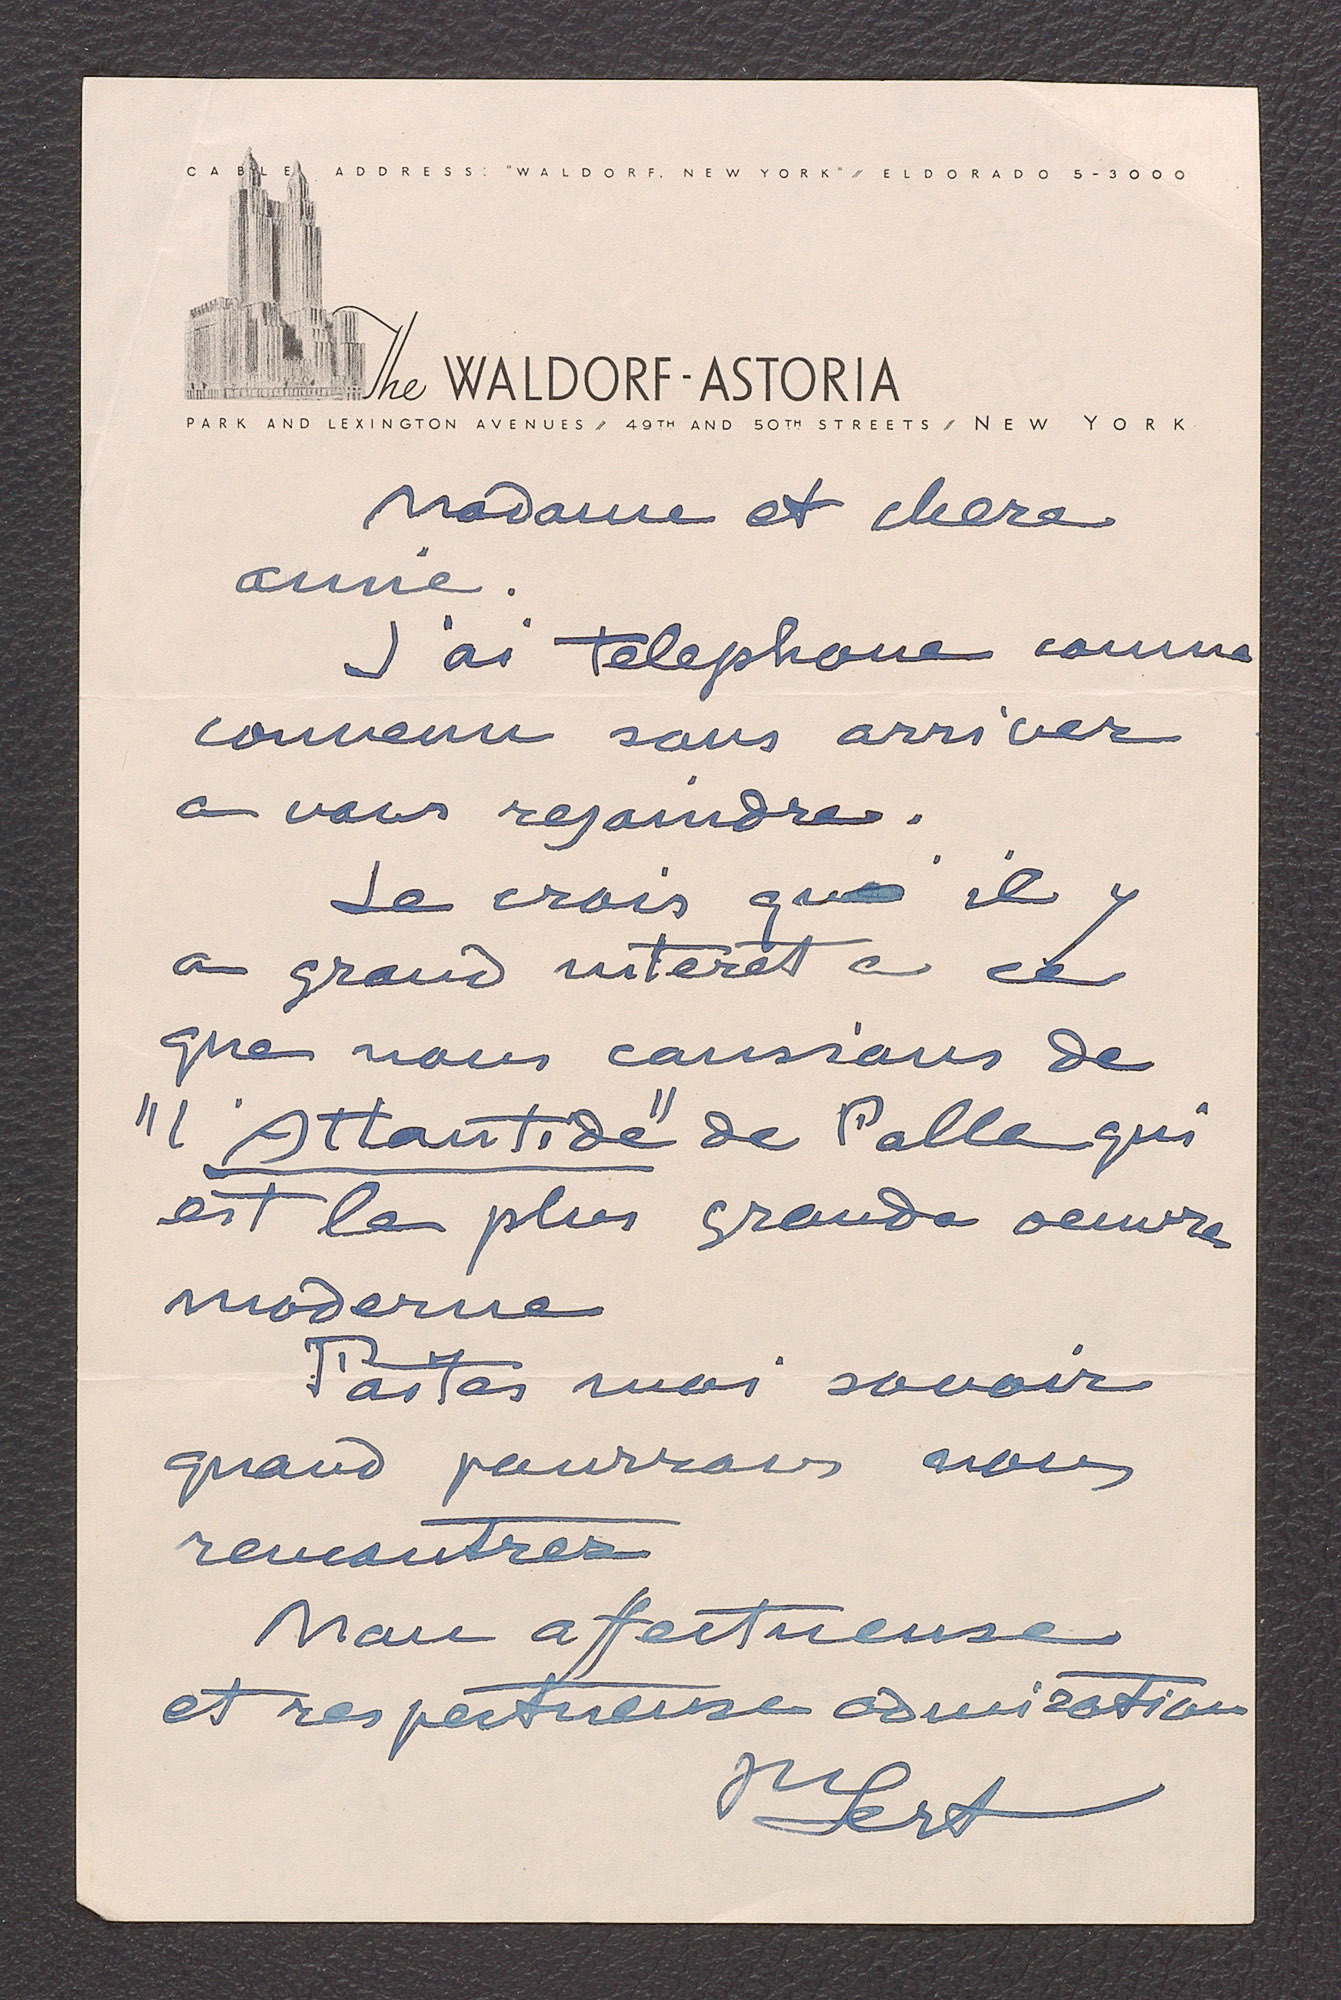 CABLE ADDRESS: "WALDORF, NEW YORK" // ELDORADO 5-3000
The WALDORF-ASTORIA
PARK AND LEXINGTON AVENUES // 49TH AND 50TH STREETS // NEW YORK
Madame et chere
amie.
J'ai telephone comme
convenu sans arriver
a vous rejoindre.
Je crois qu'il y
a grand interet a ce
que nous causions de
"l'Atlantide" de Falla qui
est la plus grande oeuvre
moderne
Faites moi savoir
quand pourrons nous
rencontrer
Mon affectueuse
et respectueuse admiration
JM Sert